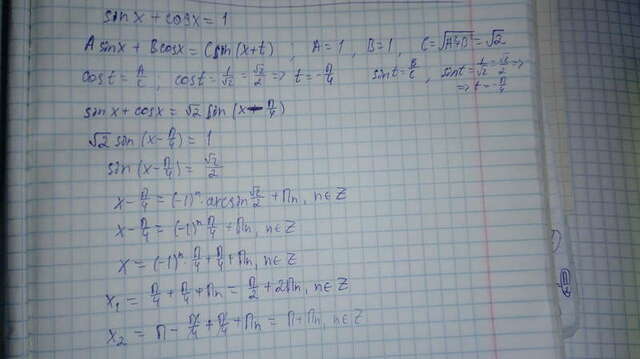 sinx + cosx = 1
Asinx + Bcosx = Csin(x+t) ; A=1 , B=1 , C=√A²+B² = √2
cost = A/C , cost = 1/√2 = √2/2 => t = -П/4 sint = B/C , sint = 1/√2 = √2/2 =>
=> t = -П/4
sinx + cosx = √2 sin(x - П/4)
√2 sin(x - П/4) = 1
sin(x - П/4) = √2/2
x - П/4 = (-1)ⁿ · arcsin √2/2 + Пn, n∈Z
x - П/4 = (-1)ⁿ П/4 + Пn, n∈Z
x = (-1)ⁿ · П/4 + П/4 + Пn, n∈Z
x₁ = П/4 + П/4 + Пn = П/2 + 2Пn, n∈Z
x₂ = П - П/4 + П/4 + Пn = П + Пn, n∈Z